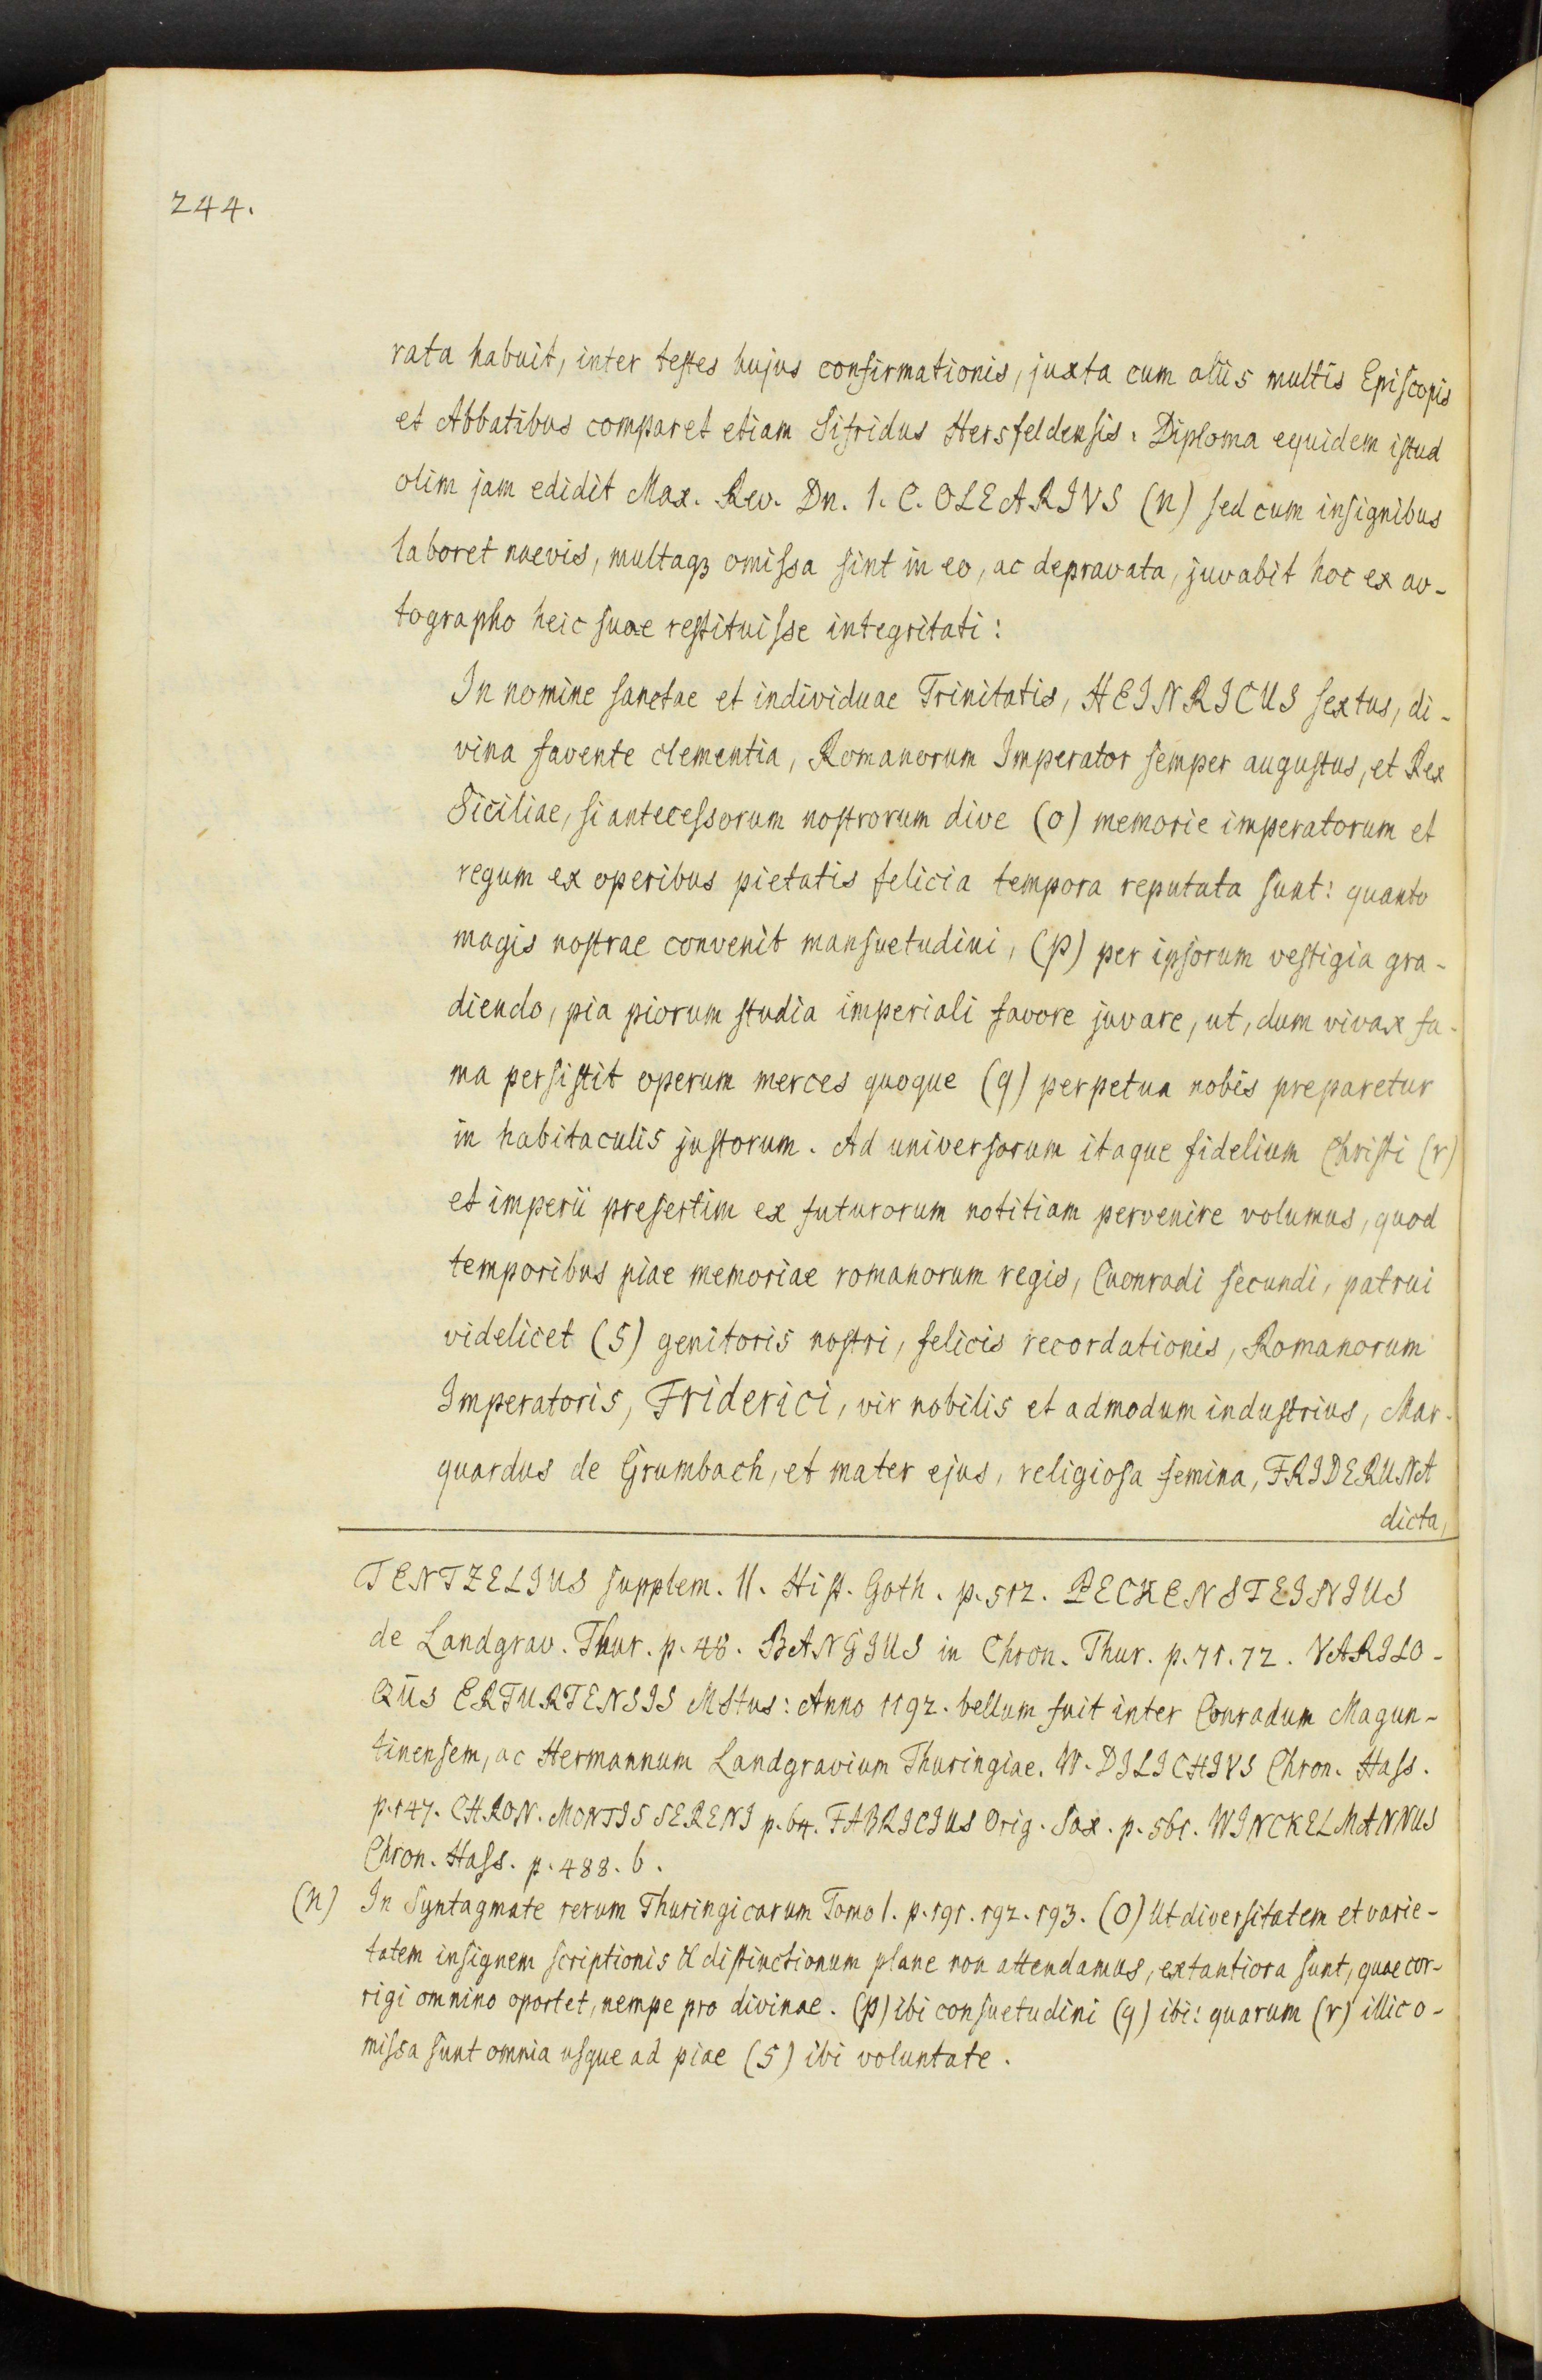 244.
rata habuit, inter testes hujus confirmationis, juxta cum aliis multis Episcopis
et Abbatibus comparet etiam Sifridus Hersfeldensis. Diploma equidem istud
olim jam edidit Max. Rev. Dn. I. C. OLEARIVS (n) sed cum insignibus
laboret naevis, multaqз omissa sint in eo, ac depravata, juvabit hoc ex au-
tographo heic suae restituisse integritati:
In nomine sanctae et individuae Trinitatis, HEINRICUS sextus, di-
vina favente clementia, Romanorum Imperator semper augustus, et Rex
Siciliae, si antecessorum nostrorum dive (o) memorie imperatorum et
regum ex operibus pietatis felicia tempora reputata sunt: quanto
magis nostrae convenit mansuetudini, (p) per ipsorum vestigia gra-
diendo, pia piorum studia imperiali favore juvare, ut, dum vivax fa-
ma persistit operum merces quoque (q) perpetua nobis preparetur
in habitaculis justorum. Ad universorum itaque fidelium Christi (r)
et imperii presertim ex futurorum notitiam pervenire volumus, quod
temporibus piae memoriae romanorum regis, Cuonradi secundi, patrui
videlicet (s) genitoris nostri, felicis recordationis, Romanorum
Imperatoris, Friderici, vir nobilis et admodum industrius, Mar-
quardus de Grumbach, et mater ejus, religiosa femina, FRIDERUNA
dicta,
TENTZELIUS supplem. II. Hist. Goth. p. 512. PECKENSTEINIUS
de Landgrav. Thur. p. 48. BANGIUS in Chron. Thur. p. 71. 72. VARILO-
QÜS ERFURTENSIS MStus: Anno 1192. bellum fuit inter Conradum Magun-
tinensem, ac Hermannum Landgravium Thuringiae. W. DILICHIVS Chron. Hass.
p. 147. CHRON. MONTIS SERENI p. 64. FABRICIUS Orig. Sax. p. 561. WINCKELMANNUS
Chron. Hass. p. 488. b.
(n) In Syntagmate rerum Thuringicarum Tomo I. p. 191. 192. 193. (o) Ut diversitatem et varie-
tatem insignem scriptionis & distinctionum plane non attendamus, extantiora sunt, quae cor-
rigi omnino oportet, nempe pro divinae. (p) ibi consuetudini (q) ibi: quarum (r) illic o-
missa sunt omnia usque ad piae (s) ibi voluntate.